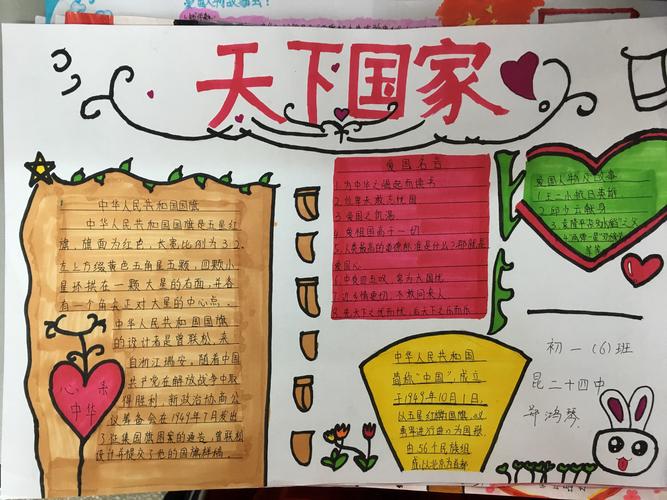 天下国家
中华人民共和国国旗
中华人民共和国国旗是五星红
旗，旗面为红色，长宽比例为3:2.
左上方缀黄色五角星五颗，四颗小
星环拱在一颗大星的右面，并各
有一个角尖正对大星的中心点.
中华人民共和国国旗
的设计者是曾联松，来
自浙江瑞安。随着中国
共产党在解放战争中取
得胜利，新政治协商会
议筹备会在1949年7月发出
了征集国旗图案的通告，曾联松
设计并提交了他的国旗样稿.
心系
中华
爱国名言
1.为中华之崛起而读书
2.位卑未敢忘忧国
3.爱国之饥渴
4.爱祖国高于一切
5.人类最高的道德标准是什么？那就是
爱国心
7.近乡情更切，不敢问来人
8.先天下之忧而忧，后天下之乐而乐
爱国人物及故事
1.王二小抗日英雄
2.邱少云献身
4."两弹一星"邓稼先
等等
中华人民共和国
简称"中国"，成立
于1949年10月1日，
以五星红旗为国旗，以
义勇军进行曲为国歌，
由56个民族组
成，以北京为首都
初一(6)班
昆二十四中